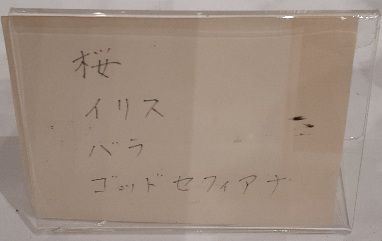 桜
イリス
バラ
ゴッドセフィアナ